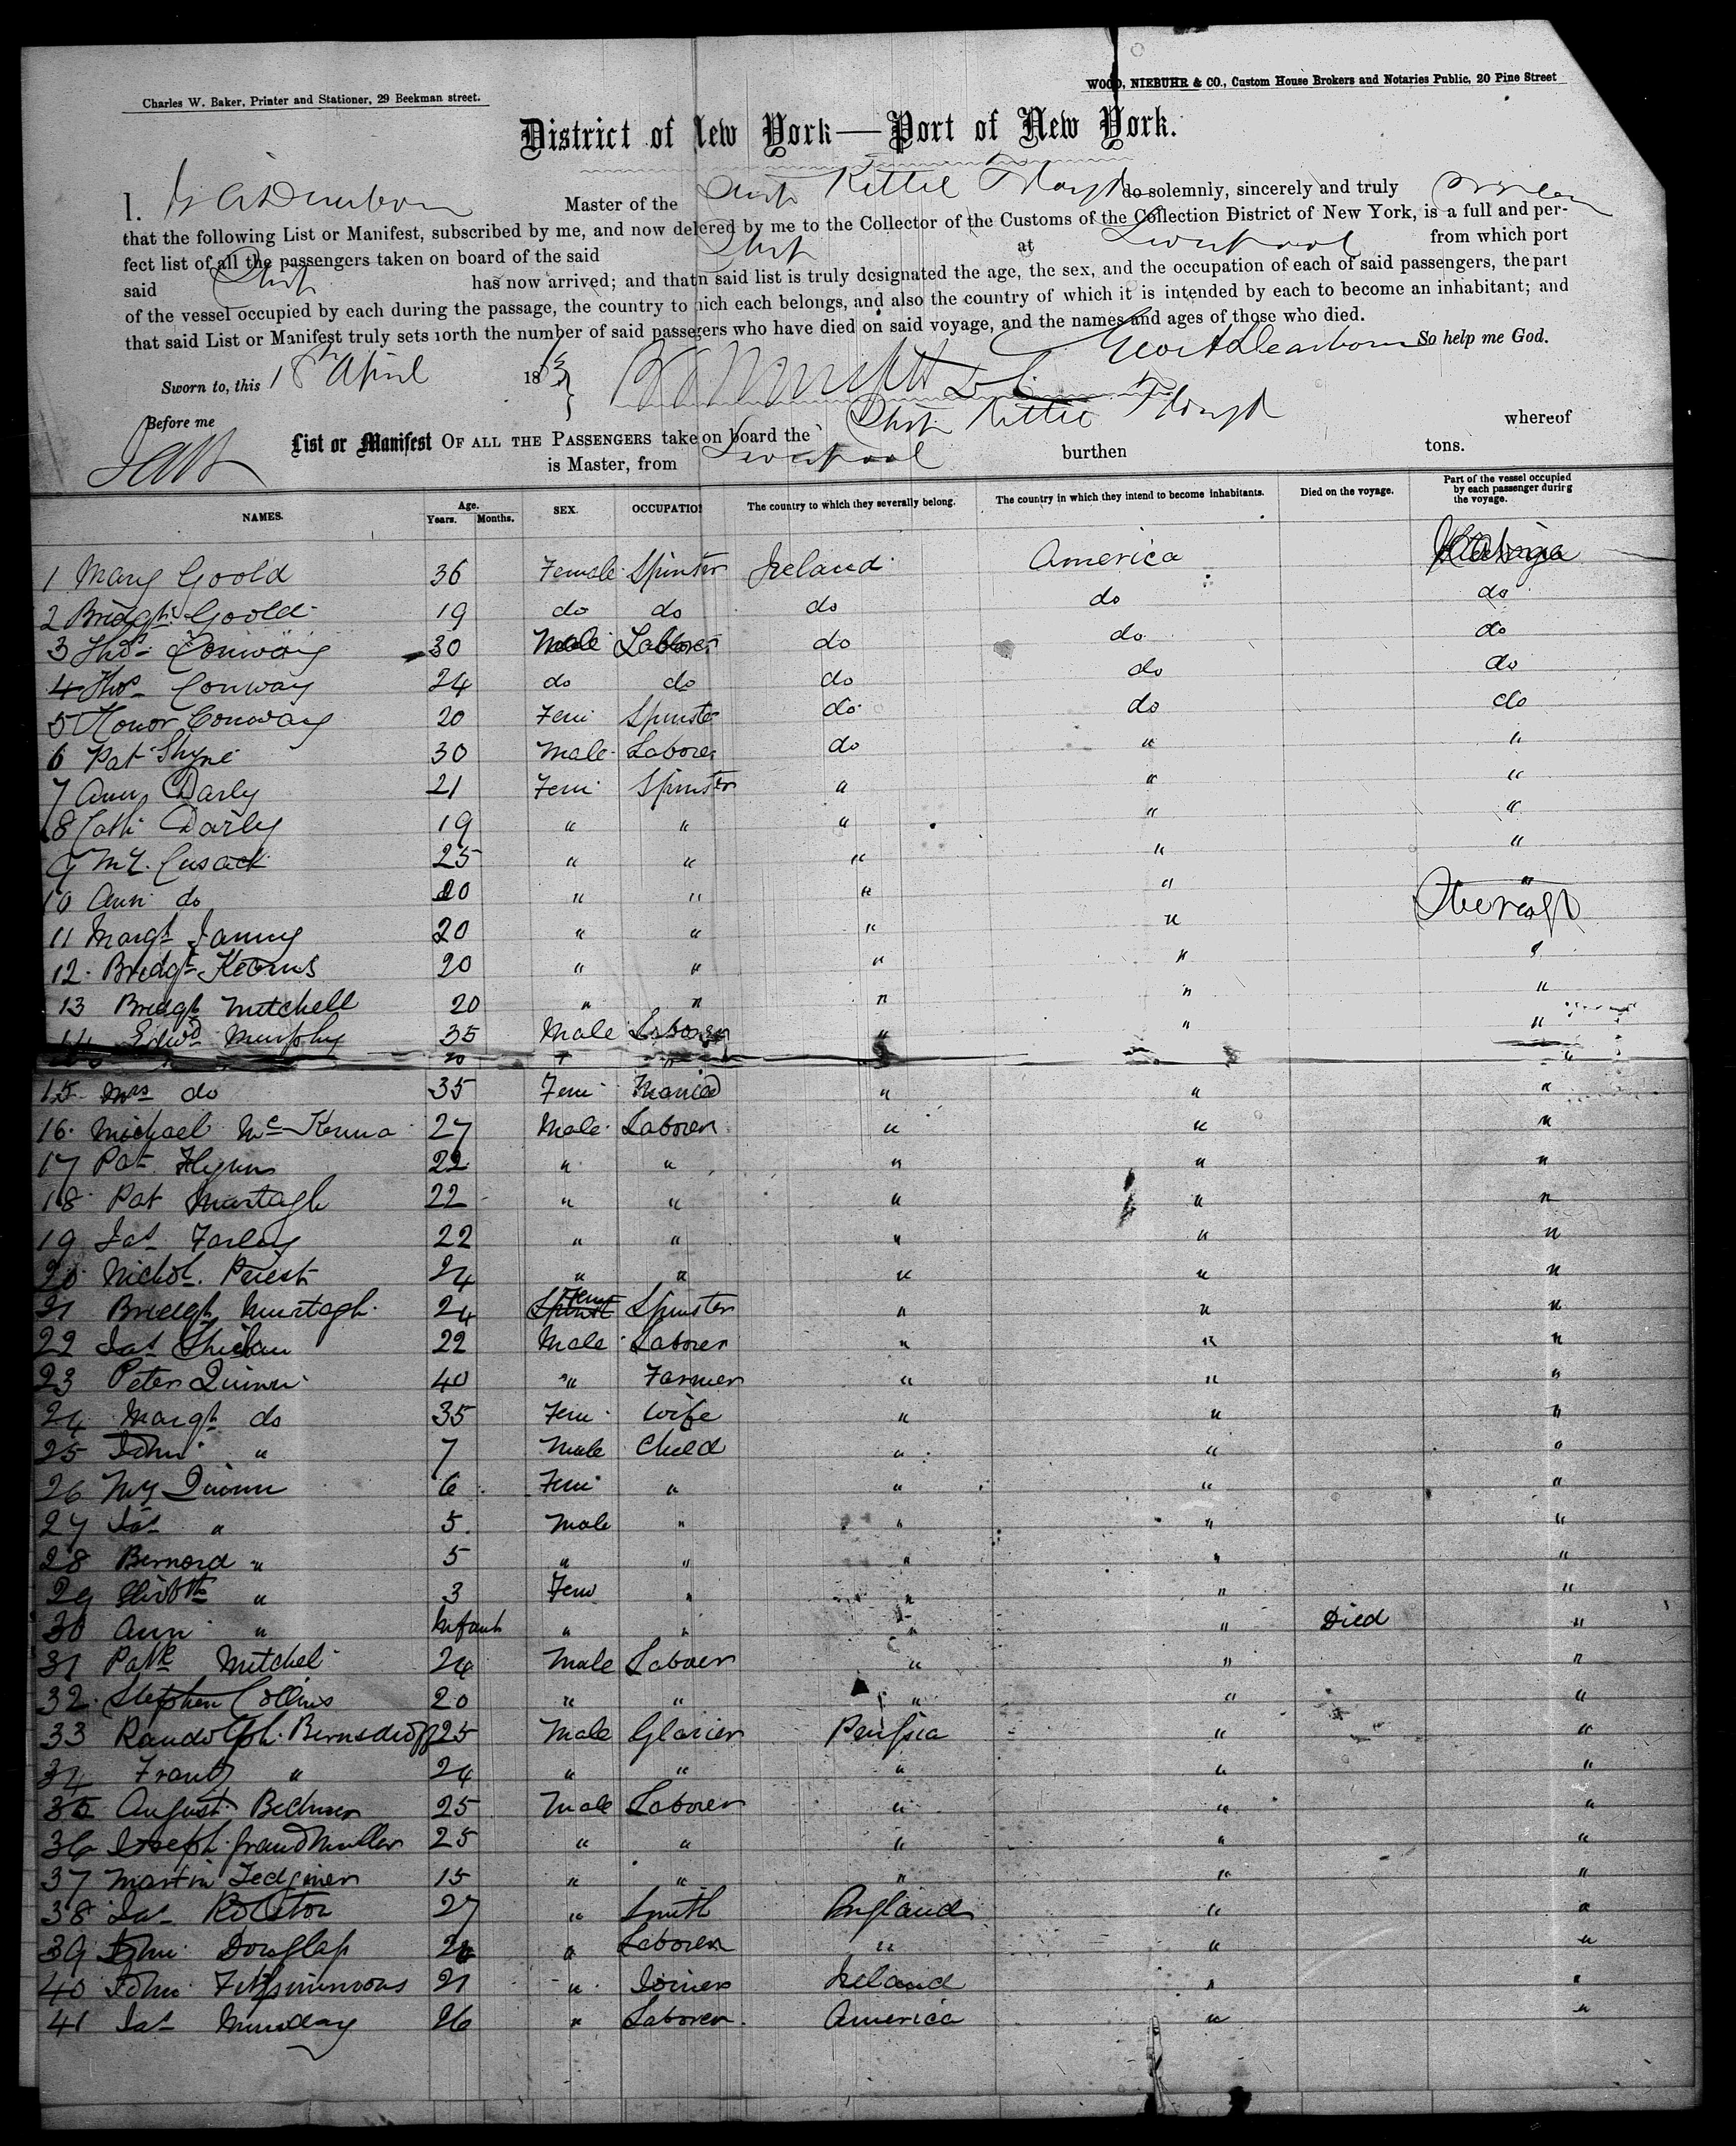 Charles W. Baker, Printer and Stationer, 29 Beekman street.
WOOD, NIEBUHR & CO., Custom House Brokers and Notaries Public, 20 Pine Street
District of New York—Port of New York.
I. Master of the Ship Kittie Floyd do solemnly, sincerely and truly
that the following List or Manifest, subscribed by me, and now delered by me to the Collector of the Customs of the Collection District of New York, is a full and per-
fect list of all the passengers taken on board of the said Ship at Liverpool from which port
said Ship has now arrived; and that n said list is truly designated the age, the sex, and the occupation of each of said passengers, the part
of the vessel occupied by each during the passage, the country to hich each belongs, and also the country of which it is intended by each to become an inhabitant; and
that said List or Manifest truly sets forth the number of said passegers who have died on said voyage, and the names and ages of those who died.
So help me God.
Sworn to, this 18th April 18
Before me
List or Manifest OF ALL THE PASSENGERS take on board the Ship Kittie Floyd whereof
is Master, from Liverpool burthen tons.
NAMES. Age. Years. Months. SEX. OCCUPATIO The country to which they severally belong. The country in which they intend to become inhabitants. Died on the voyage. Part of the vessel occupied by each passenger during the voyage.
1 Mary Goold 36 Female Spinster Ireland America
2 Bridgt. Goold 19 do do do do do
3 Thos. Conway 30 Male Laborer do do do
4 Thos Conway 24 do do do do do
5 Honor Conway 20 Fem Spinster do do do
6 Pat Shyne 30 Male Laborer do " "
7 Ann Darly 21 Fem Spinster " " "
8 Cath Darly 19 " " " " "
9 My. Cusack 25 " " " " "
10 Ann do 20 " " " " "
11 Margt 20 " " " " Steerage
12 Bridgt Kearns 20 " " " " "
13 Bridgt Mitchell 20 " " " " "
14 Edwd Murphy 35 Male Laborer " " "
15 Mrs do 35 Fem Married " " "
16 Michael McKenna 27 Male Laborer " " "
17 Pat Flynn 22 " " " " "
18 Pat Murtagh 22 " " " " "
19 Jas Farley 22 " " " " "
20 Nichol. Priest 24 " " " " "
21 Bridgt Murtagh 24 Fem Spinster " " "
22 Jas Sheehan 22 Male Laborer " " "
23 Peter Quinn 40 " Farmer " " "
24 Margt do 35 Fem Wife " " "
25 John " 7 Male Child " " "
26 My Quinn 6 Fem " " " "
27 Jas " 5 Male " " " "
28 Bernard " 5 " " " " "
29 " 3 Fem " " " "
30 Ann " Infant " " " " Died "
31 Patk Mitchel 24 Male Laborer " " "
32 Stephen Collins 20 " " " " "
33 Randolph 25 Male Glazier Prussia " "
34 Frantz " 24 " " " " "
35 August 25 Male Laborer " " "
36 Joseph Grandmuller 25 " " " " "
37 Martin 15 " " " " "
38 Jas Rolston 27 " Smith England " "
39 John Douglass " Laborer " " "
40 John Fitzsimmons 21 " Joiner Ireland " "
41 Jas Munday 26 " Laborer America " "